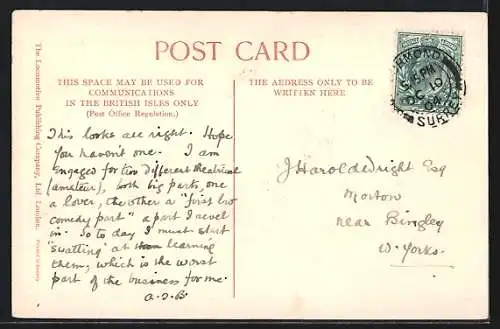 POST CARD
THIS SPACE MAY BE USED FOR
COMMUNICATIONS
IN THE BRITISH ISLES ONLY
(Post Office Regulation.)
THE ADDRESS ONLY TO BE
WRITTEN HERE
The Locomotive Publishing Company, Ltd. London.
This looks all right. Hope
you haven't one. I am
engaged for two different theatrical
(amateur), both big parts, one
a lover, the other a "first low
comedy part" a part I revel
in. So to day I must start
"swatting" at learning
them, which is the worst
part of the business for me.
J Harold Wright Esq
Morton
near Bingley
W. Yorks.
SURREY